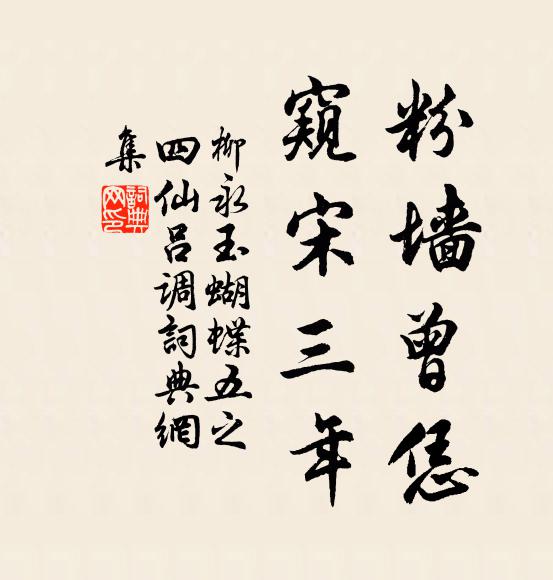 粉墙曾恁
窺宋三年
柳永玉蝴蝶五之
四仙吕调詞典網
集
詞典網印